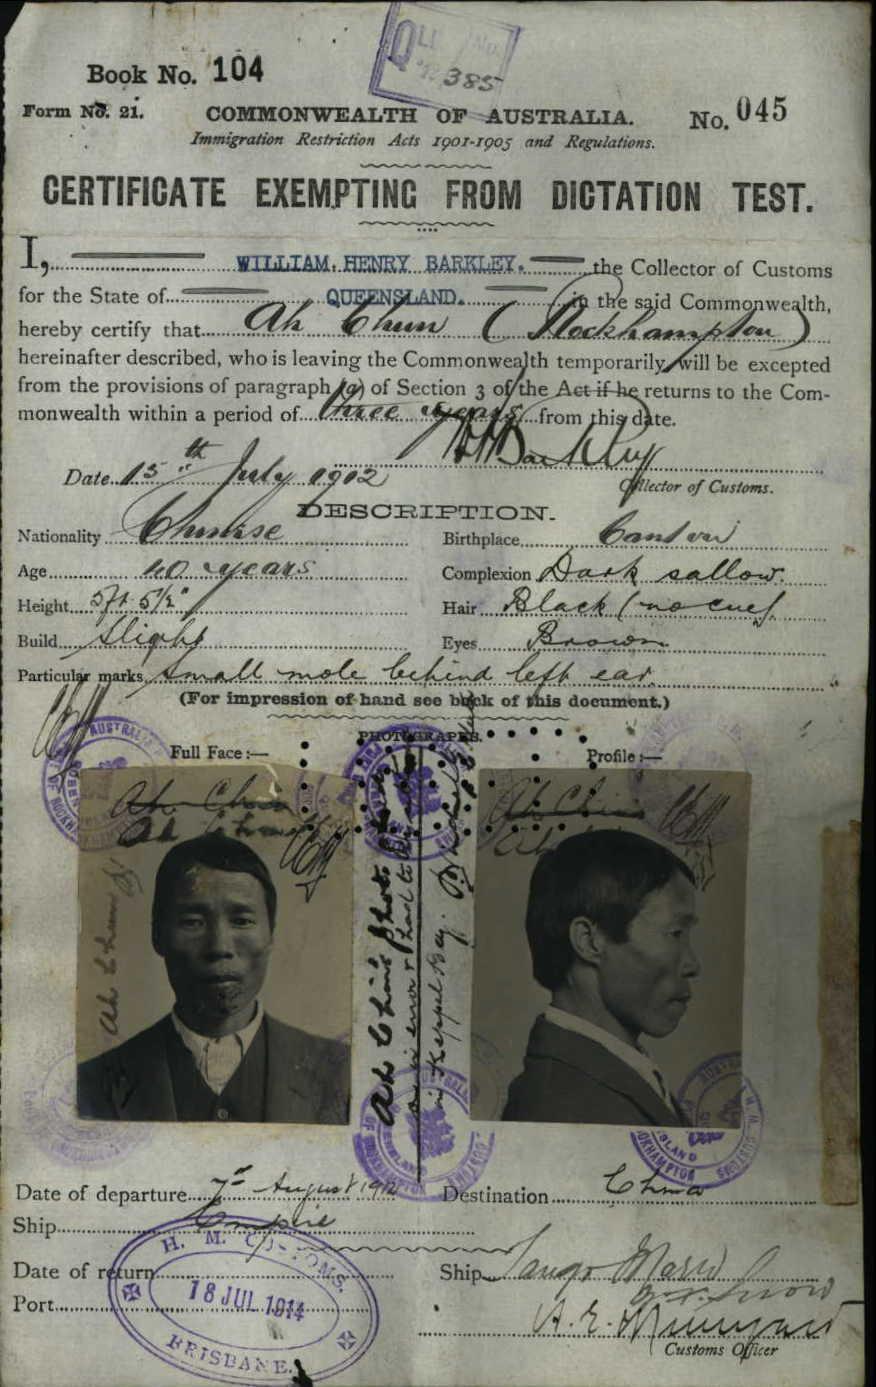 QLD No.
385
Book No. 104
Form No. 21. COMMONWEALTH OF AUSTRALIA. No. 045
Immigration Restriction Acts 1901-1905 and Regulations.
CERTIFICATE EXEMPTING FROM DICTATION TEST.
I, WILLIAM HENRY BARKLEY. the Collector of Customs
for the State of QUEENSLAND. in the said Commonwealth,
hereby certify that Ah Chun (Rockhampton)
hereinafter described, who is leaving the Commonwealth temporarily will be excepted
from the provisions of paragraph (a) of Section 3 of the Act if he returns to the Com-
monwealth within a period of three years from this date.
WH Barkley
Date 15th July 1912
Collector of Customs.
DESCRIPTION.
Nationality Chinese Birthplace Canton
Age 40 years Complexion Dark sallow.
Height 5ft 5½" Hair Black (no cue).
Build Slight Eyes Brown
Particular marks small mole behind left ear.
(For impression of hand see back of this document.)
PHOTOGRAPHS.
Full Face:— Profile:—
Ah Chin
Ah Chun
Ah Chun
Ah Chin
Ah Chin's photo
in error & had to
in Keppel Bay.
Date of departure 7th August 1912 Destination China
Ship Empire
Date of return Ship Tango Maru
Port
H. M. CUSTOMS.
18 JUL 1914
BRISBANE.
Customs Officer